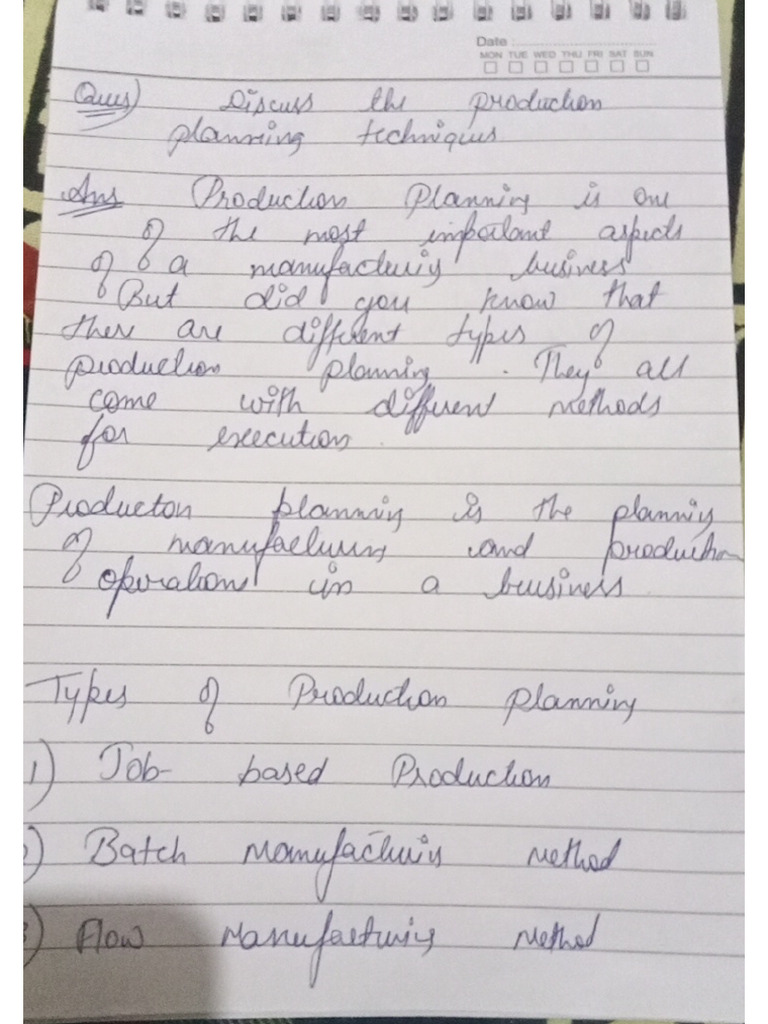 Date
MON TUE WED THU FRI SAT SUN
Ques) Discuss the production
planning techniques
Ans Production Planning is one
of the most important aspects
of a manufacturing business
But did you know that
there are different types of
production planning. They all
come with different methods
for execution.
Production planning is the planning
of manufacturing and production
operations in a business
Types of Production planning
1) Job- based Production
2) Batch Manufacturing Method
3) Flow Manufacturing Method